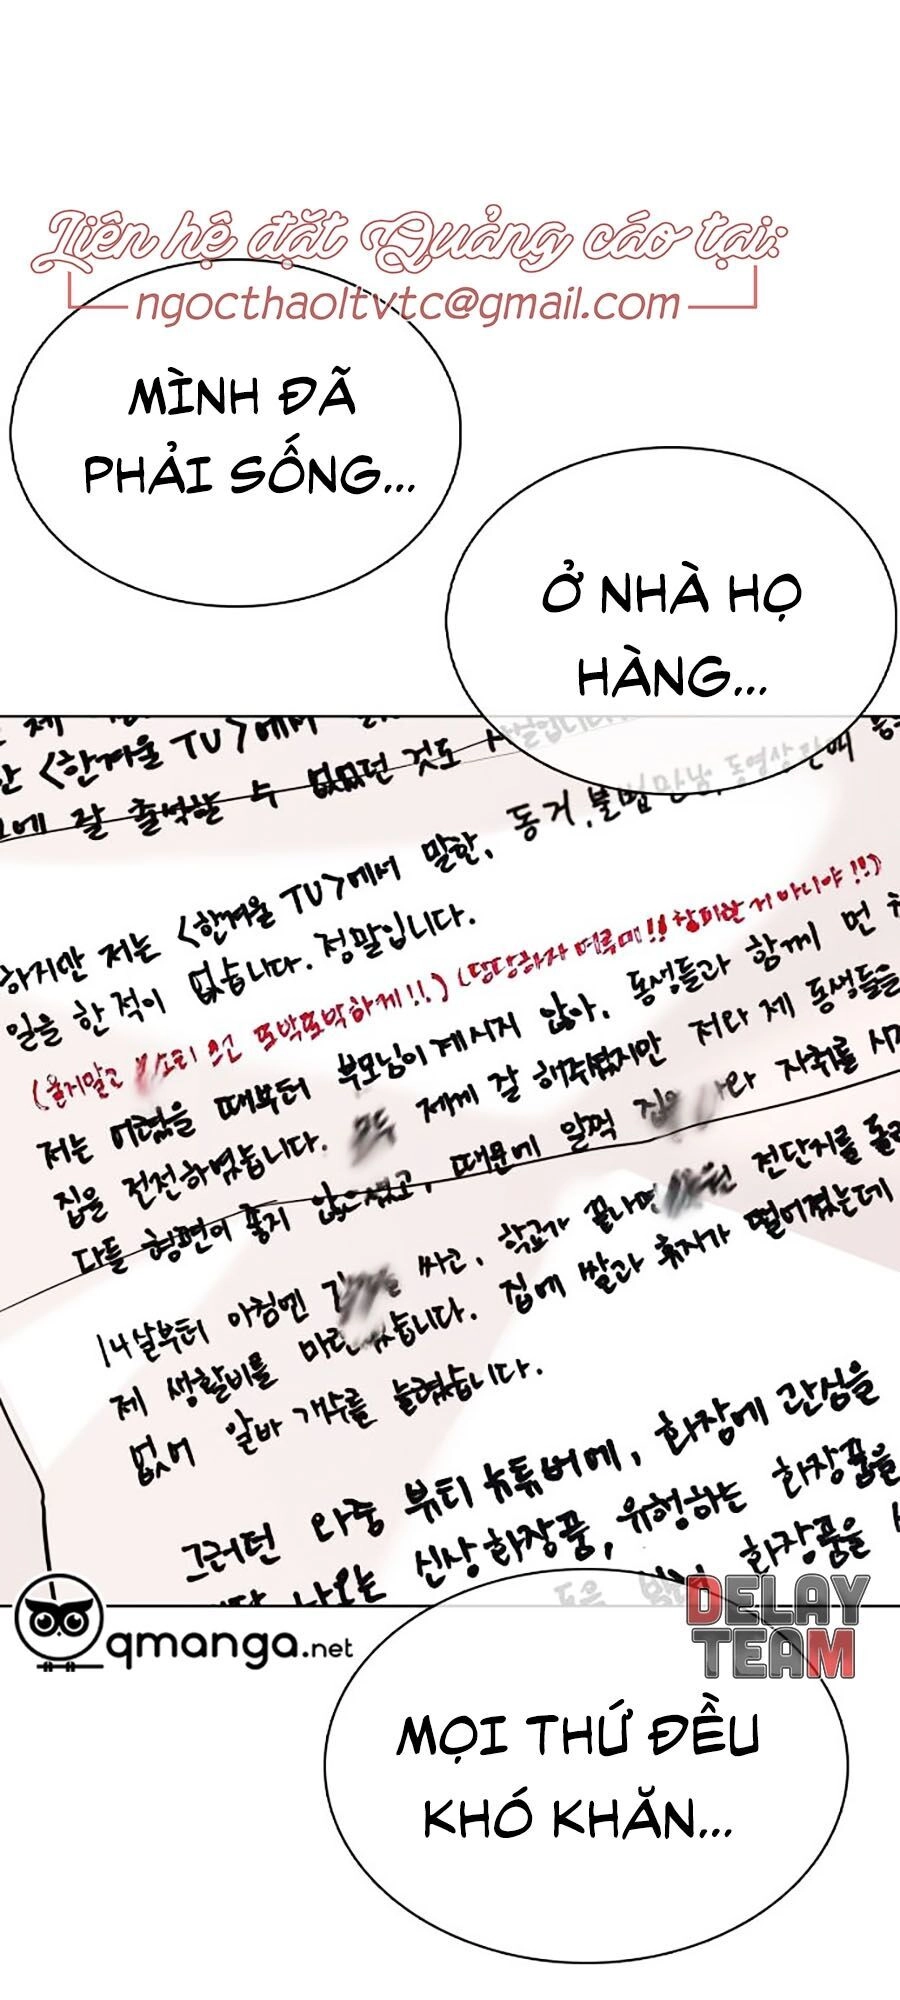 Liên hệ đặt Quảng cáo tại:
ngocthaoltvtc@gmail.com
MÌNH ĐÃ
PHẢI SỐNG...
Ở NHÀ HỌ
HÀNG...
<한겨울 TV>에서
에 잘 출석할 수 없었던 것도
하지만 저는 <한겨울 TV>에서 말한, 동거, 불법 만남, 동영상
일을 한 적이 없습니다. 정말입니다.
(울지말고 또박또박하게!!) (당당하자 미루미!! 창피한 거 아니야!!)
저는 어렸을 때부터 부모님이 계시지 않아, 동생들과 함께 먼
집을 전전하였습니다. 모두 제게 잘 해주셨지만 저와 제 동생들을
다들 형편이 좋지 않으셨고, 때문에 일찍 자취를
14살부터 아침엔 싸고, 학교가 끝나면 전단지를
제 생활비를 집에 쌀과 휴지가 떨어졌는데
없어 알바 개수를 늘렸습니다.
그러던 와중 뷰티 뉴튜버에, 화장에 관심을
나오는 신상 화장품, 유행하는 화장품을
화장품을
qmanga.net
DELAY
TEAM
MỌI THỨ ĐỀU
KHÓ KHĂN...